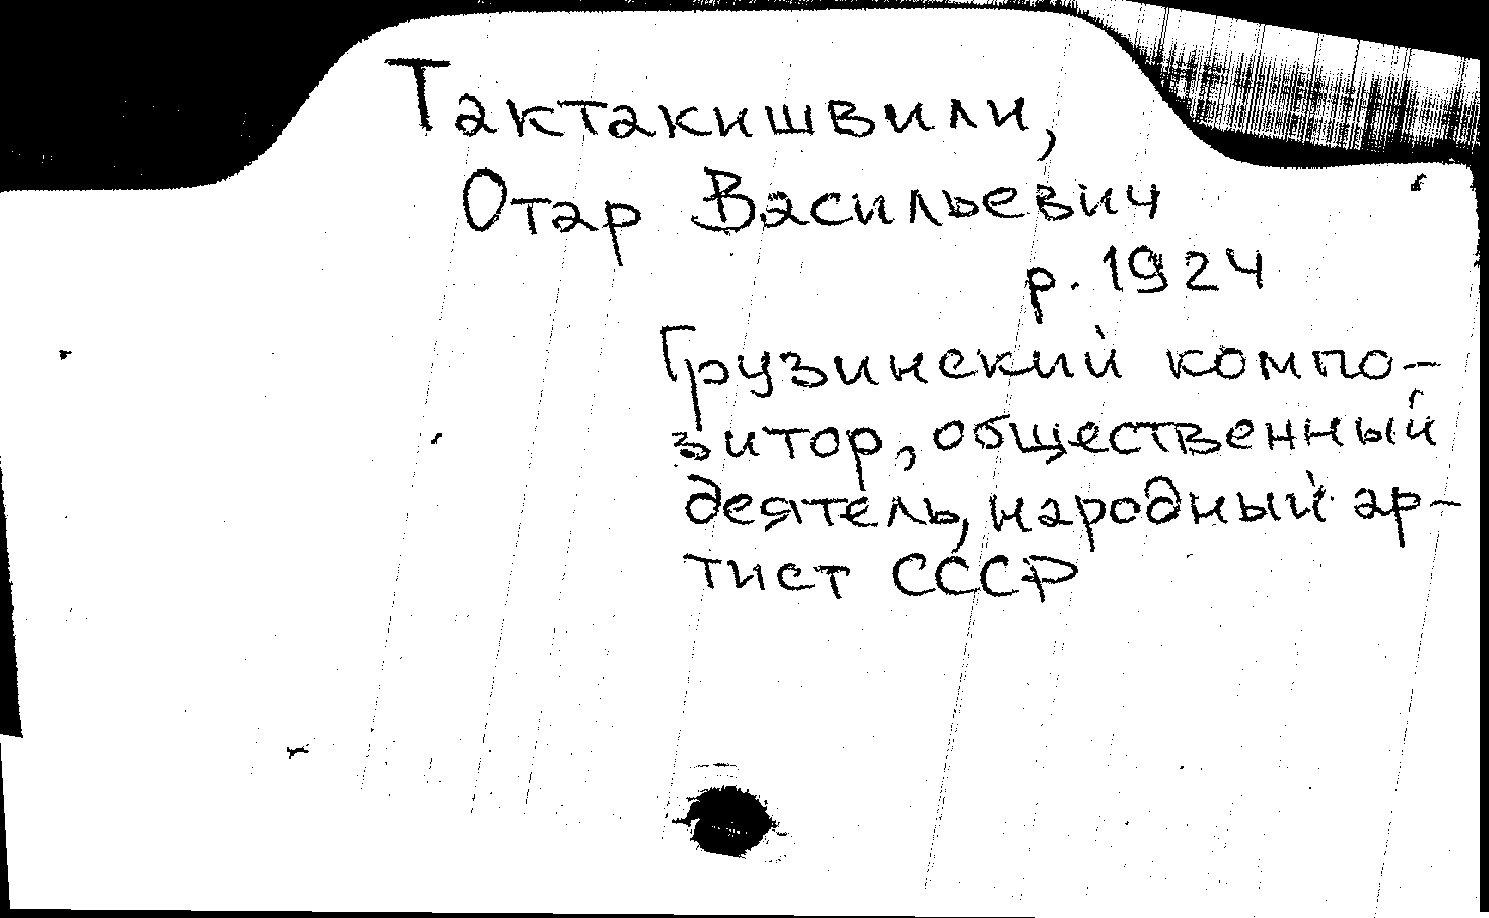 Тактакишвили,
Отар Васильевич
р. 1924
Грузинский компо-
зитор, общественный
деятель, народный ар-
тист СССР